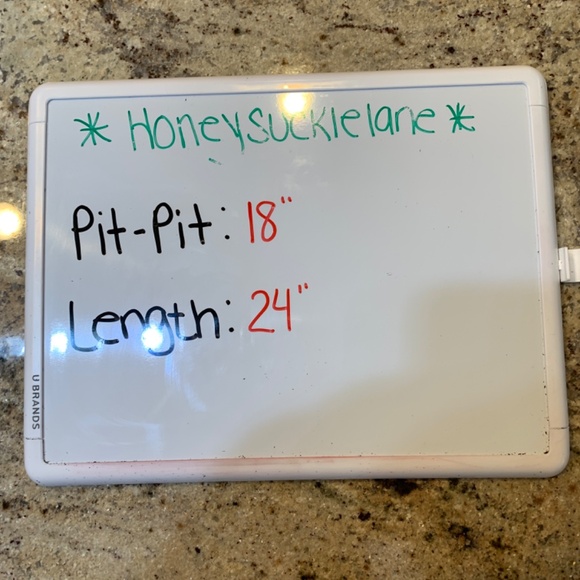 * Honeysucklelane *
Pit-Pit: 18"
Length: 24"
U BRANDS